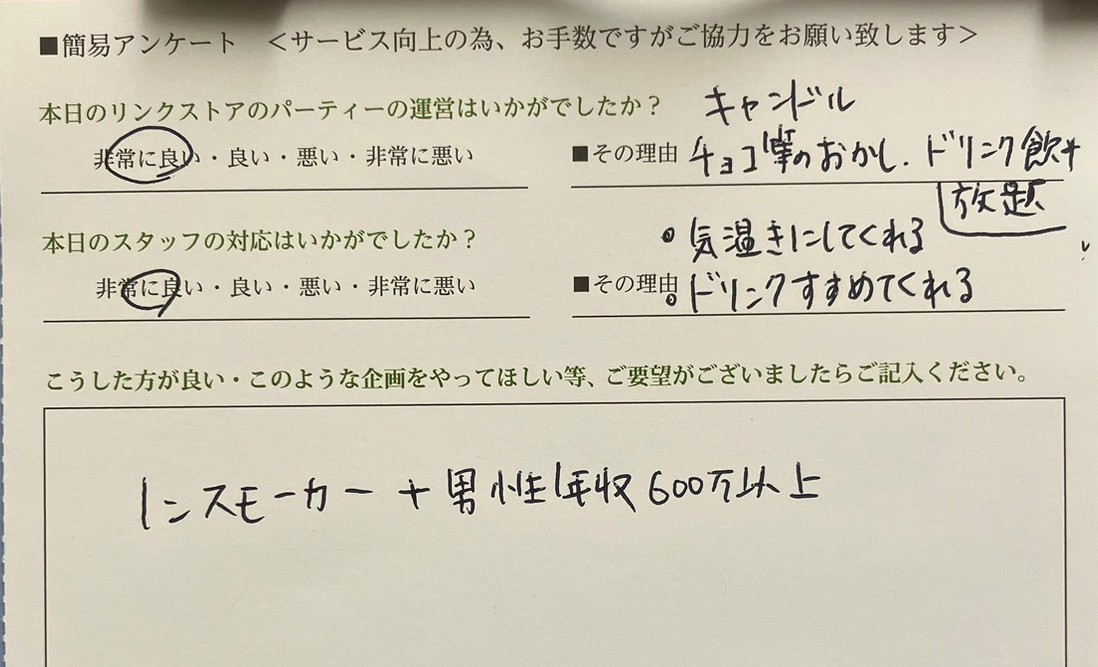 ■簡易アンケート ＜サービス向上の為、お手数ですがご協力をお願い致します＞
本日のリンクストアのパーティーの運営はいかがでしたか？
非常に良い・良い・悪い・非常に悪い
■その理由
キャンドル
チョコ等のおかし、ドリンク飲み
放題
本日のスタッフの対応はいかがでしたか？
非常に良い・良い・悪い・非常に悪い
■その理由
気温きにしてくれる
ドリンクすすめてくれる
こうした方が良い・このような企画をやってほしい等、ご要望がございましたらご記入ください。
ノンスモーカー＋男性年収600万以上